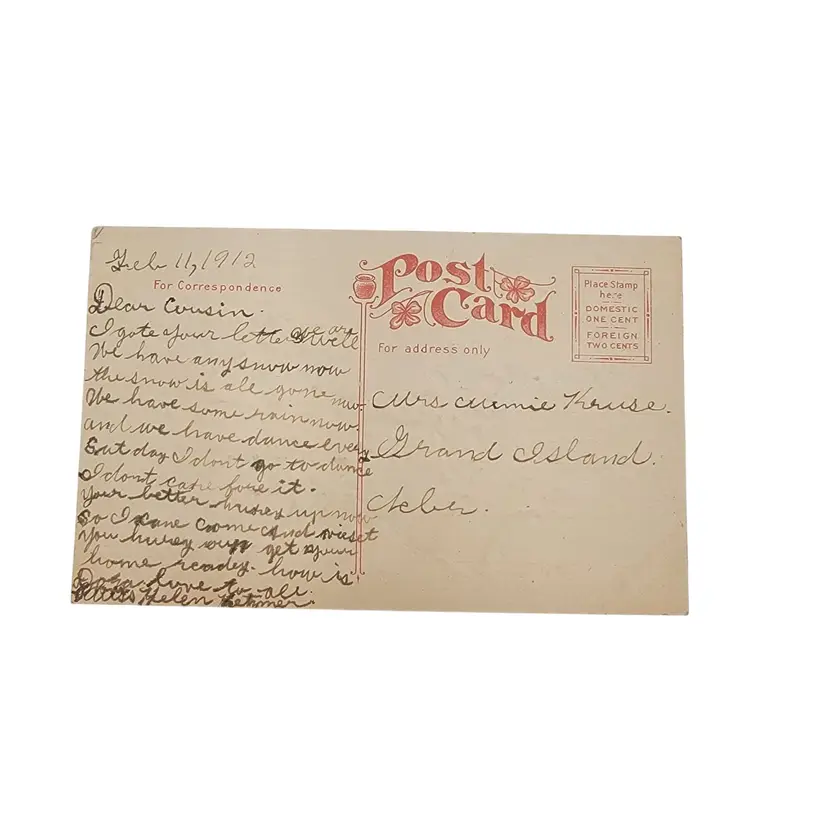 Feb 11, 1912
For Correspondence
Dear Cousin.
I gote your letter we are well
We have any snow now
the snow is all gone now.
We have some rain now.
and we have dance every
Sat day I dont go to dance
I dont care fore it.
Your better hurey up now
So I cane come and viset
you hurey oup get your
home ready. how is
love to all.
Helen
Post Card
For address only
Place Stamp
here
DOMESTIC
ONE CENT
FOREIGN
TWO CENTS
Mrs Kruse.
Grand Island.
Nebr.